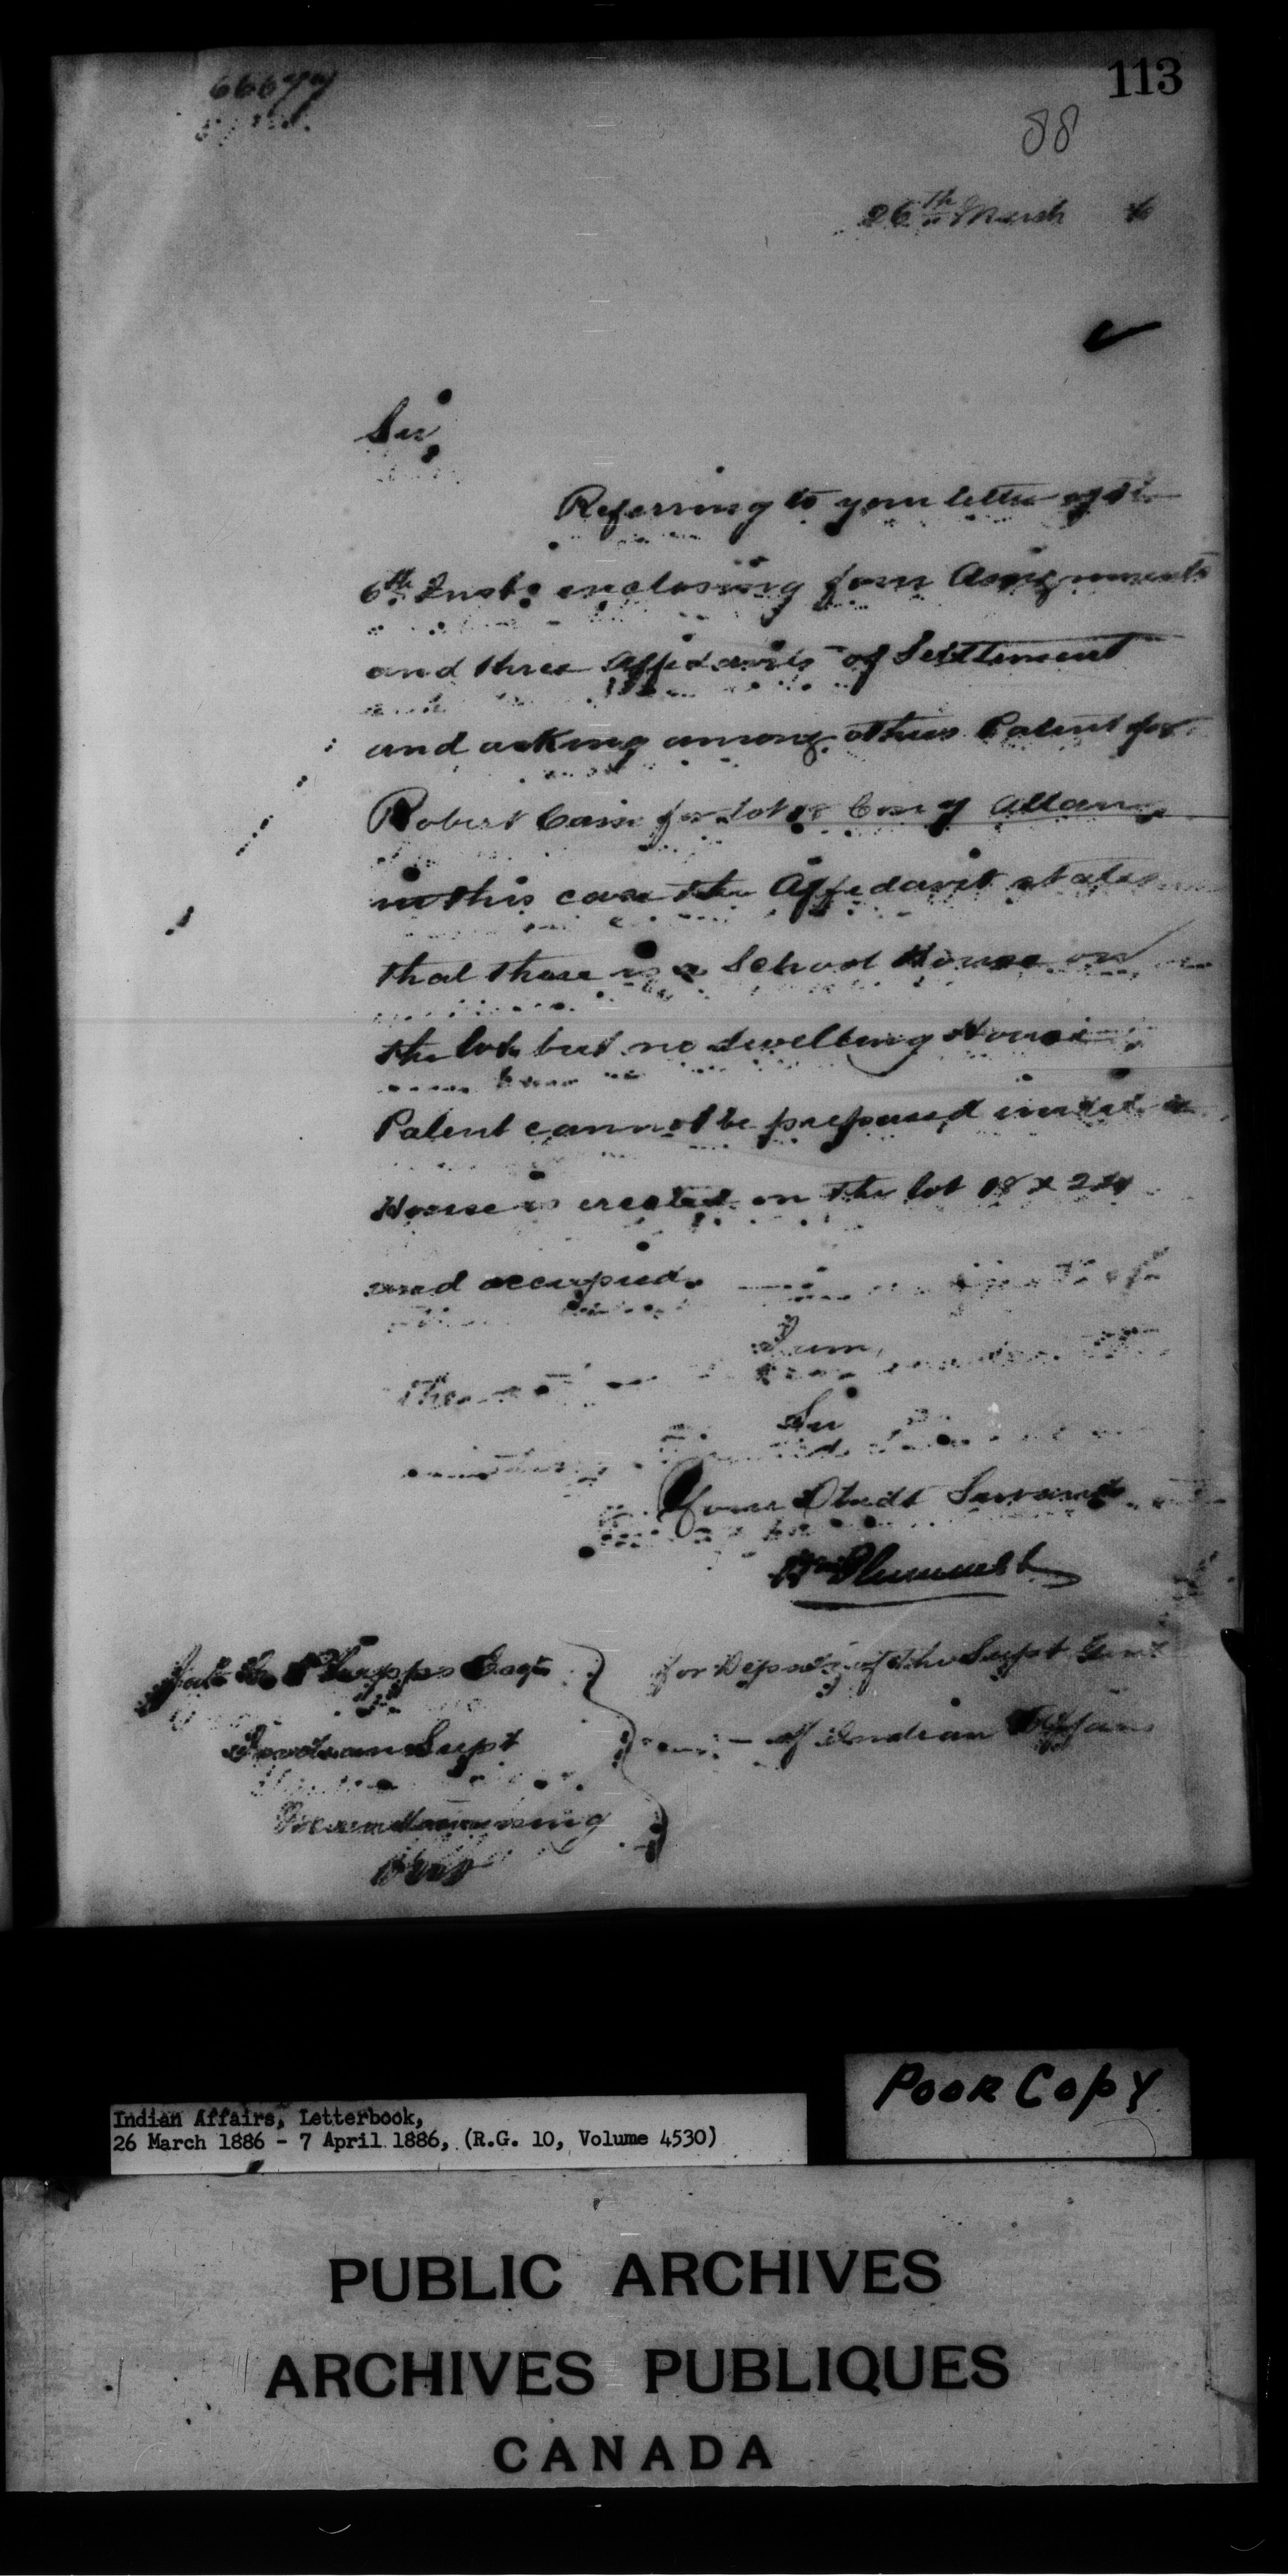 113
88
26th March 6
Sir,
Referring to your letter of the
6th Inst. enclosing four Assignments
and three Affidavits of Settlement
and asking among others Patent for
Robert Cain for Lot Con 9 Allan
in this case the Affidavit states
that there is a School House on
the lot but no dwelling House
Patent cannot be prepared until a
House is erected on the lot 18 x 24
and occupied.
I am,
Sir
Your Obedt Servant
Wm Plummer
for Deputy of the Supt Genl
of Indian Affairs
Jas. C. Phipps Esqre
Indian Supt
Manitowaning
Ont
Poor Copy
Indian Affairs, Letterbook,
26 March 1886 - 7 April 1886, (R.G. 10, Volume 4530)
PUBLIC ARCHIVES
ARCHIVES PUBLIQUES
CANADA